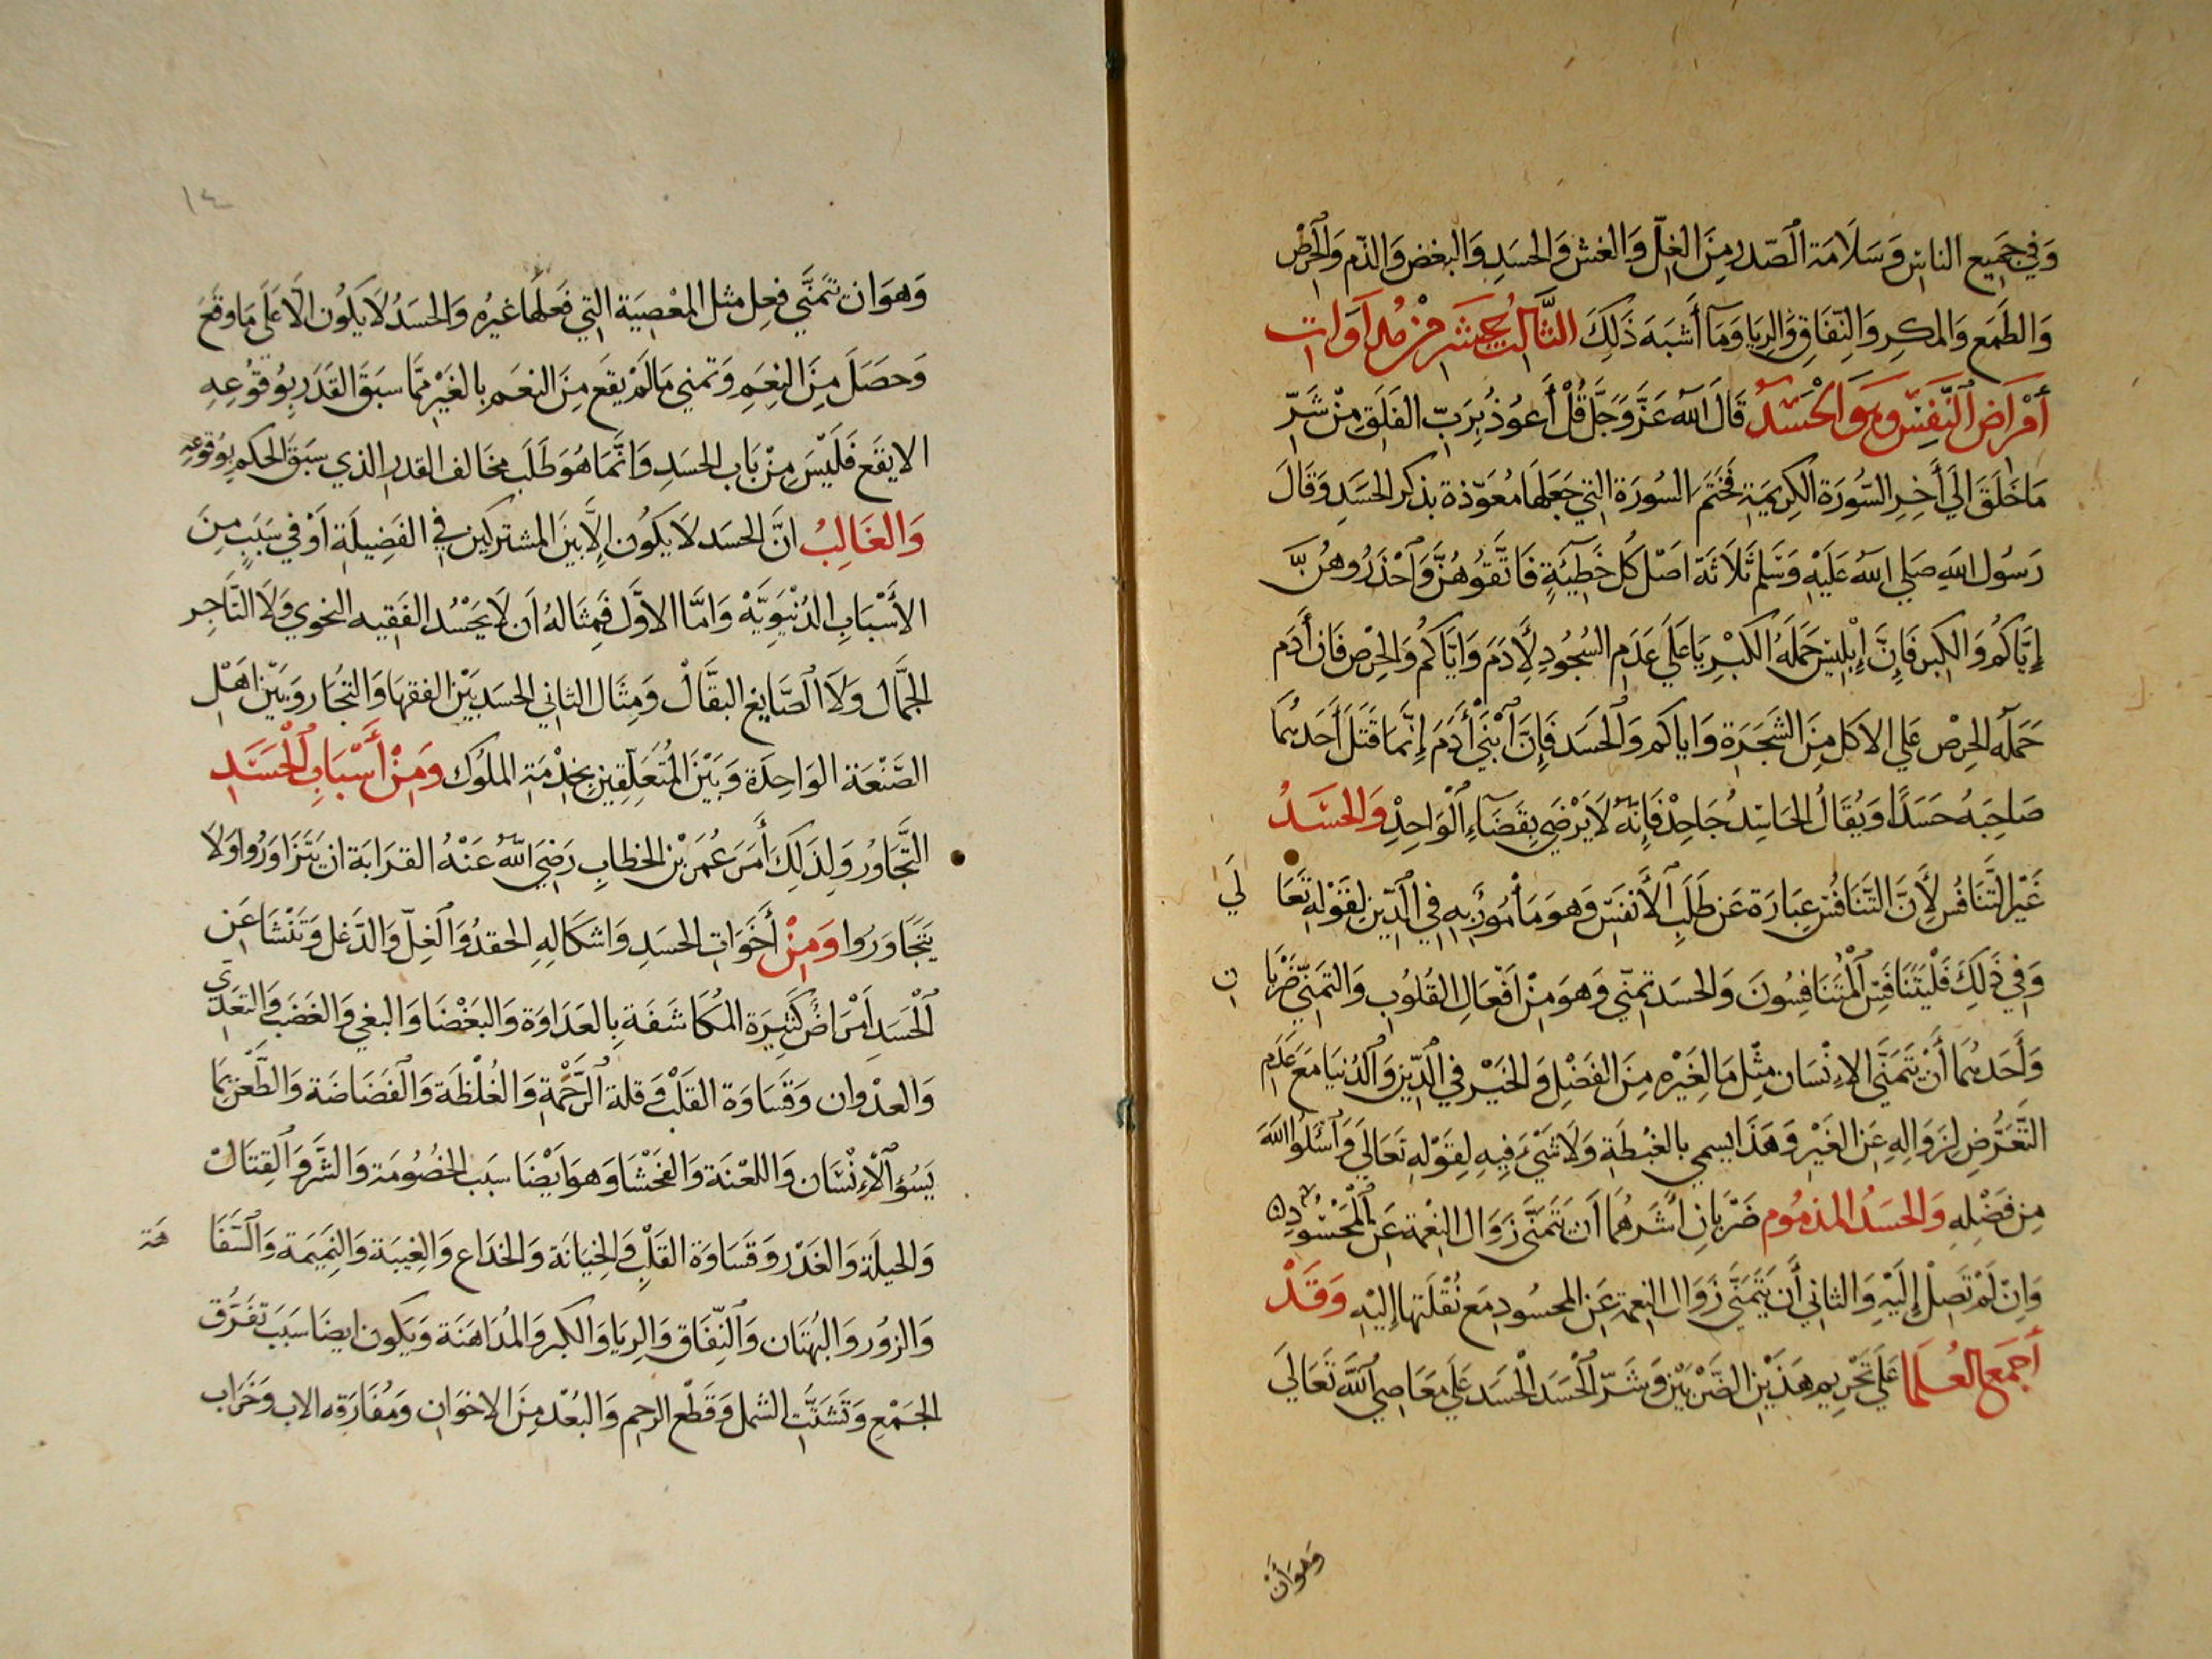 وَفِي جَمِيع الناسِ وَسَلَامَة الصّدر مِنَ الغِلّ وَالغش وَالحسَدِ وَالبغض وَالذّم وَالحِرْص
وَالطَمَع وَالمكرِ وَالنِّفَاقِ وَالرِيَا وَمَا أَشبَهَ ذَلِكَ الثَّالِثُ عَشَر مِنْ مُدَاوَات
أَمْرَاضِ النَّفسِ وَهوَ الحْسَدُ قَالَ اللّه عَزَّ وَجَلَّ قُلْ أَعوُذُ بِرَبّ الفَلَقِ مِنْ شَرِّ
مَا خَلَقَ الَي أَخِرِ السّورَة الكرِيمَةِ فَخَتَمَ السورَة التي جَعَلهَا مُعَوّذة بذكر الحسَدِ وَقَالَ
رَسُول اللهِ صَلي الله عَلَيْهِ وَسَّلم ثَلَاثَة اصْل كُل خَطِيَئةٍ فَاتَّقوُهُنَّ وَاحْذَرُوهُنَّ
إِيَّاكُم وَالكِبر فَإِنَّ إِبْلِيسَ حَمَلَهُ الكبْرِيَا عَلَي عَدَمِ السُجُودِ لِأَدَمَ وَايَّاكُم وَالحِرْص فَان أَدَم
حَمَله الحِرْص عَلي الاكل مِنَ الشَجَرَة وَاياكم وَالحَسَد فَإِنَّ ابْنَيْ أَدَمَ إِنَّمَا قَتَلَ أَحَدهُمَا
صَاحِبَهُ حَسَدًا وَيُقَالُ الحَاسِدُ جَاحِدْ فَإِنّهُ لَا يَرْضَي بِقَضَاءِ الْوَاحِدِ وَالحسَدُ
غَيْر التَّنَافُس لِأَنَّ التّنَافُس عِبَارَة عَن طَلَبِ الأَنفَس وَهوَ مَأموُر بِهِ فِي الدِّين لِقَوْلِهِ تَعَالَي
وَفِي ذَلِكَ فَلْيَتَنَافَسِ الْمُتَنَافِسُونَ وَالحسَد تمنِّي وَهوَ مِنْ اَفْعَالِ القُلُوبِ وَالتمَنِّي ضَرْبَان
وَأَحَدهُمَا أَنْ يَتَمَنَّي الإِنْسَان مِثْل مَا لِغَيْرِهِ مِنَ الفَضْلِ وَالخَيْر فِي الدِّين وَالدُنيَا مَعَ عَدَمِ
التَّعَرُّضِ لِزَوَالِهِ عَنِ الغَيْرِ وَهَذَا يسمي بالغِبْطَةِ وَلَا شَيْءَ فِيهِ لِقَوْلِهِ تَعَالَي وَاسْئَلوُا اللَّه
مِن فَضْلِهِ وَالحسَدُ المذمُوم ضَرْبَانِ أَشَرهُمَا اَنْ يَتَمَنَّي زَوَال النِعْمَة عَنِ الْمَحْسُودِ
وَاِنْ لَمْ تَصِلْ إِلَيْهِ وَالثاني أَن يَتَمَنَّي زَوَال النِعمَة عَنِ المحسُودِ مَع نُقْلَتها إِليْهِ وَقَدْ
أجمَع العُلَمَا عَلَي تَحْرِيمِ هَذَيْنِ الضَّرْبَيْنِ وَشَرّ الْحَسَد الْحَسَد عَلَي مَعَاصِي اللَّه تَعَالَي
وَهوَ أَن
١٤
وَهوَ ان تَمَنَّي فعِل مثل المعْصِيَة التِي فَعَلَهَا غيرُه وَالحسَدُ لَا يكُون الَّا عَلَي مَا وَقعَ
وَحصَلَ مِنَ النِعَمِ وَتمني مَا لَمْ يَقَع مِنَ النعَم بِالغَيْر مِمَّا سَبَقَ القَدَر بِوُقوُعِهِ
الا يقَع فَلَيْسَ مِنْ بَاب الحسَدِ وَانَّمَا هُوَ طَلَب مخَالف القدر الذي سبَقَ الحكم بِوُقوعِهِ
وَالغَالِبُ انَّ الحسَد لَا يَكُون إِلَّا بَيْنَ المشتركين فِي الفَضِيلَة أَوْ فِي سَبَبٍ مِنَ
الأَسْبَابِ الدُنْيَوِيَّهْ وَامَّا الاوَّل فَمِثَالهُ اَن لَا يَحْسُد الفَقِيه النحوي وَلَا التَّاجِر
الجمَّال وَلَا الصَّايغ البقَّالْ وَمِثَال الثاني الحسَد بَيْنَ الفقهَا وَالتجُار وَبَيْنَ اهْلِ
الصَّنْعَة الوَاحِدَة وَبَيْنَ المُتَعَلِقِين بِخِدْمَةِ الملُوُك وَمِنْ أَسْبَابِ الْحَسَدِ
التَّجَاوُر وَلِذَلِكَ أَمَرَ عُمَر بْن الخطابِ رَضِيَ اللّهُ عَنْهُ القرَابَة ان يَتَزَاوَرُوا وَلَا
يَتَجَاوَرُوا وَمِنْ أَخَوَاتِ الحسَدِ وَاشكَالِهِ الحقدُ وَالغِلّ وَالدَّغل وَتَنْشَا عَنِ
الْحَسَدِ اَمْرَاض كَثِيرَة المُكَاشَفَة بِالعَدَاوَة وَالبَغْضَا وَالبغي وَالغَضَب وَالتعَدّي
وَالعدْوان وَقَسَاوَة القَلْب وَقلة الرَّحْمَةِ وَالغُلْظَة وَالفَضَاضَة وَالطَّعْن بِمَا
يَسُؤ الْاِنْسَان وَاللعْنَة وَالفَحْشَا وَهوَ ايْضَا سبَب الخصُومَة وَالشَّر وَالقِتَالْ
وَالحيلَة وَالغَدْر وَقَسَاوَة القَلْبِ وَالخِيَانَة وَالخدَاع وَالغِيبَة وَالنِمَيمَة وَالسَّفَاهَة
وَالزوُر وَالبُهتَان وَالنِّفَاق وَالرِيَا وَالكبر وَالمُدَاهَنَة وَيَكون ايضَا سَبَب تَفَرُّق
الجمْعِ وَتَشَتُّت الشمل وَقَطْع الرحِمِ وَالبُعْد مِنَ الاِخوَان وَمُفَارَقه الاب وَخَرَاب